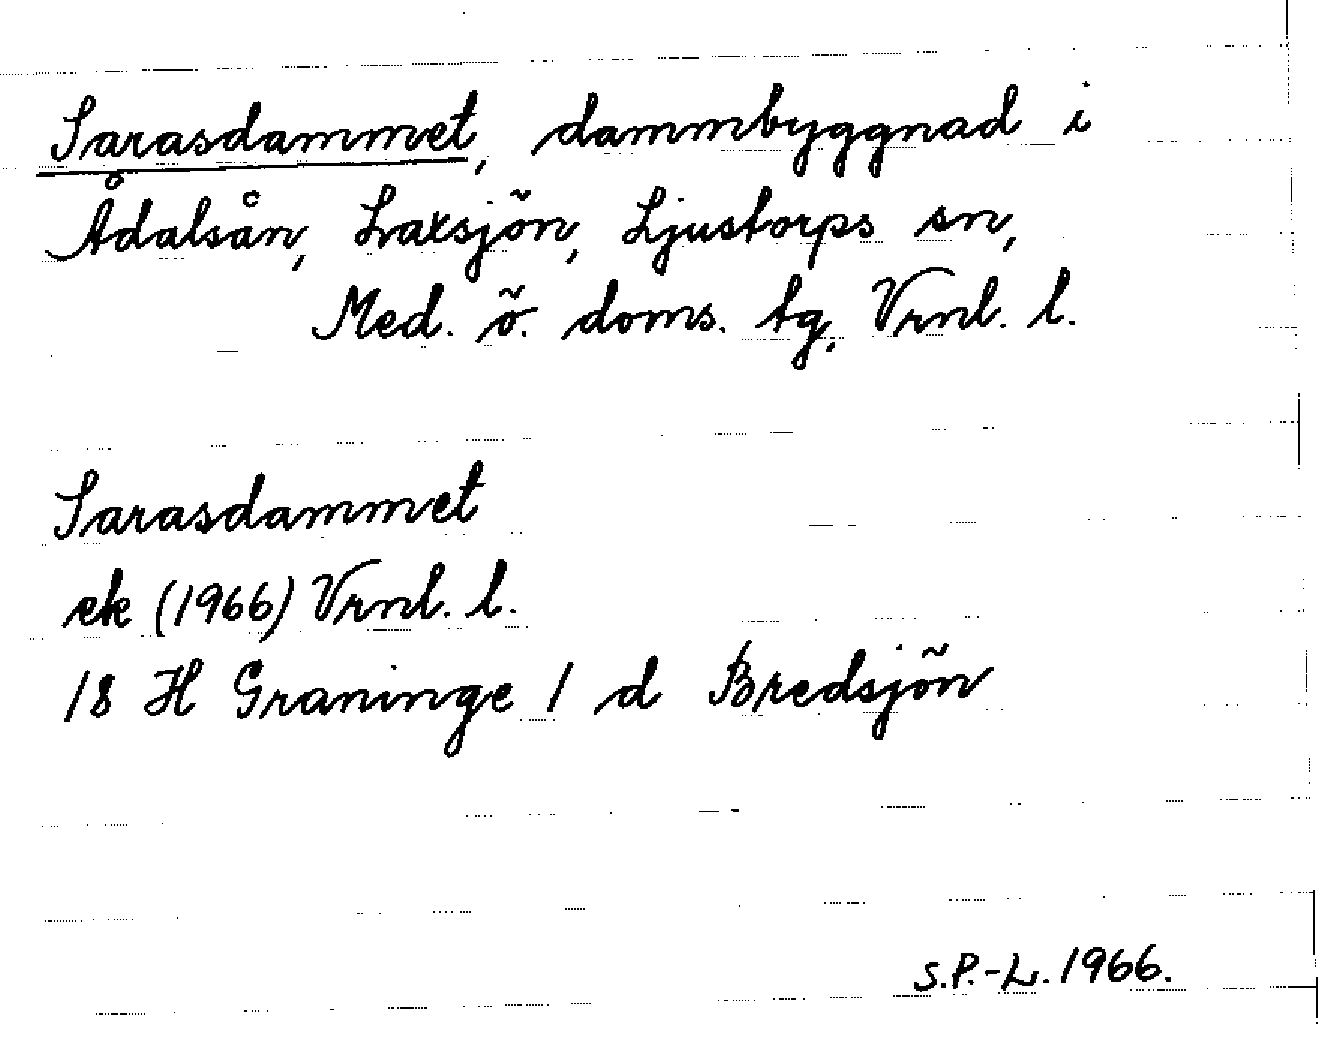 Sarasdammet, dammbyggnad i
Ådalsån, Laxsjön, Ljustorps sn,
Med. ö. doms. tg, Vrnl. l.
Sarasdammet
ek (1966) Vrnl. l.
18 H Graninge 1 d Bredsjön
S.P.-L. 1966.